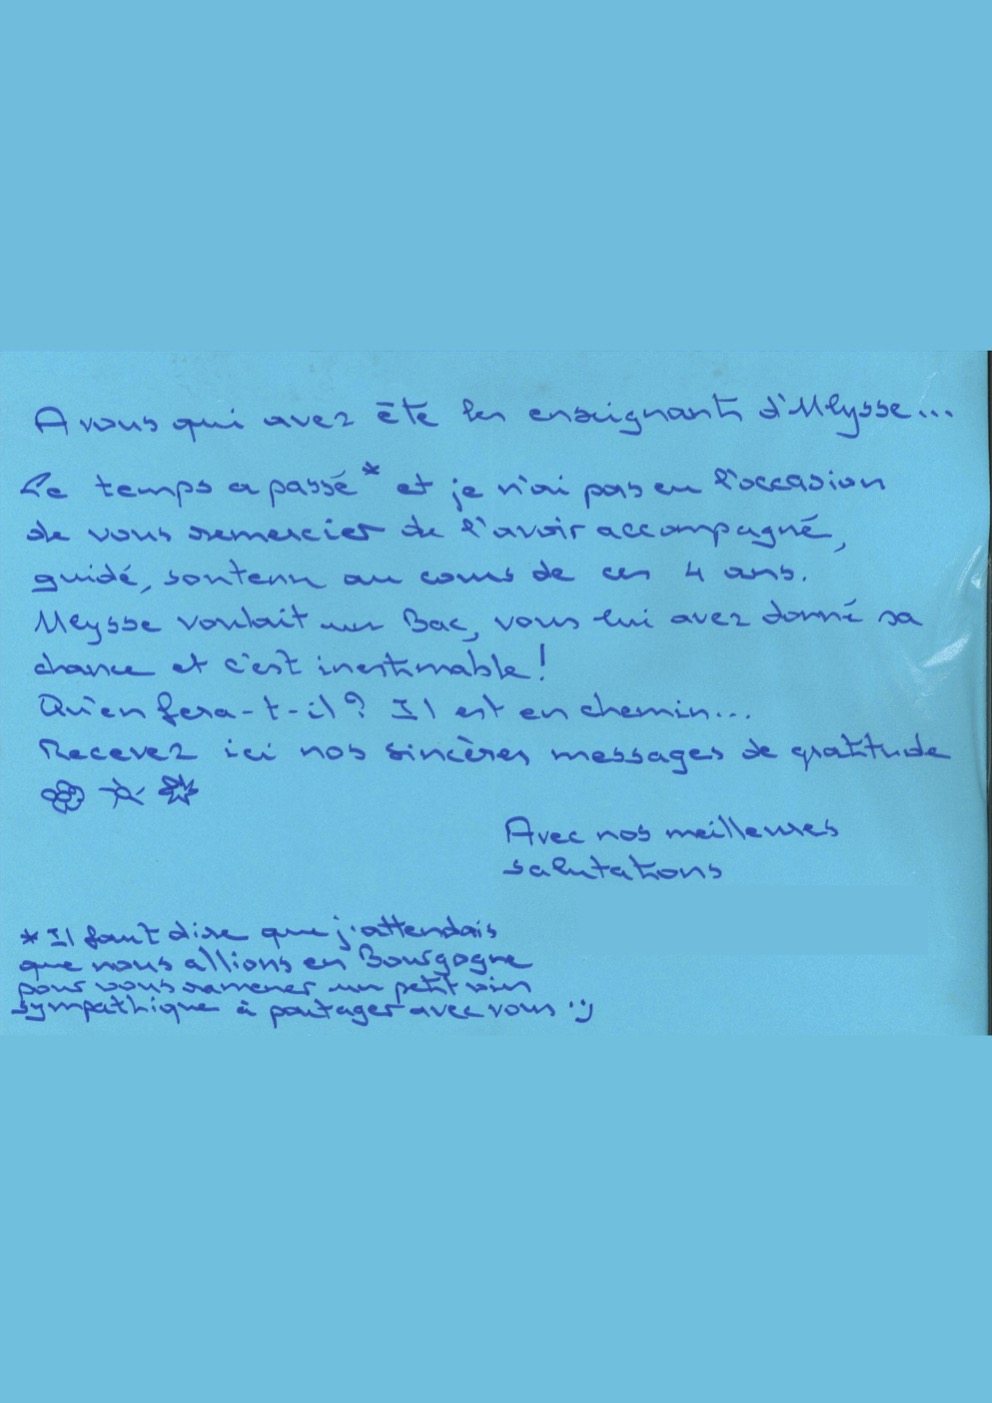 A vous qui avez été les enseignants d'Ulysse...
Le temps a passé* et je n'ai pas eu l'occasion
de vous remercier de l'avoir accompagné,
guidé, soutenu au cours de ces 4 ans.
Ulysse voulait un Bac, vous lui avez donné sa
chance et c'est inestimable !
Qu'en fera-t-il ? Il est en chemin...
Recevez ici nos sincères messages de gratitude
Avec nos meilleures
salutations
* Il faut dire que j'attendais
que nous allions en Bourgogne
pour vous ramener un petit vin
sympathique à partager avec vous :)